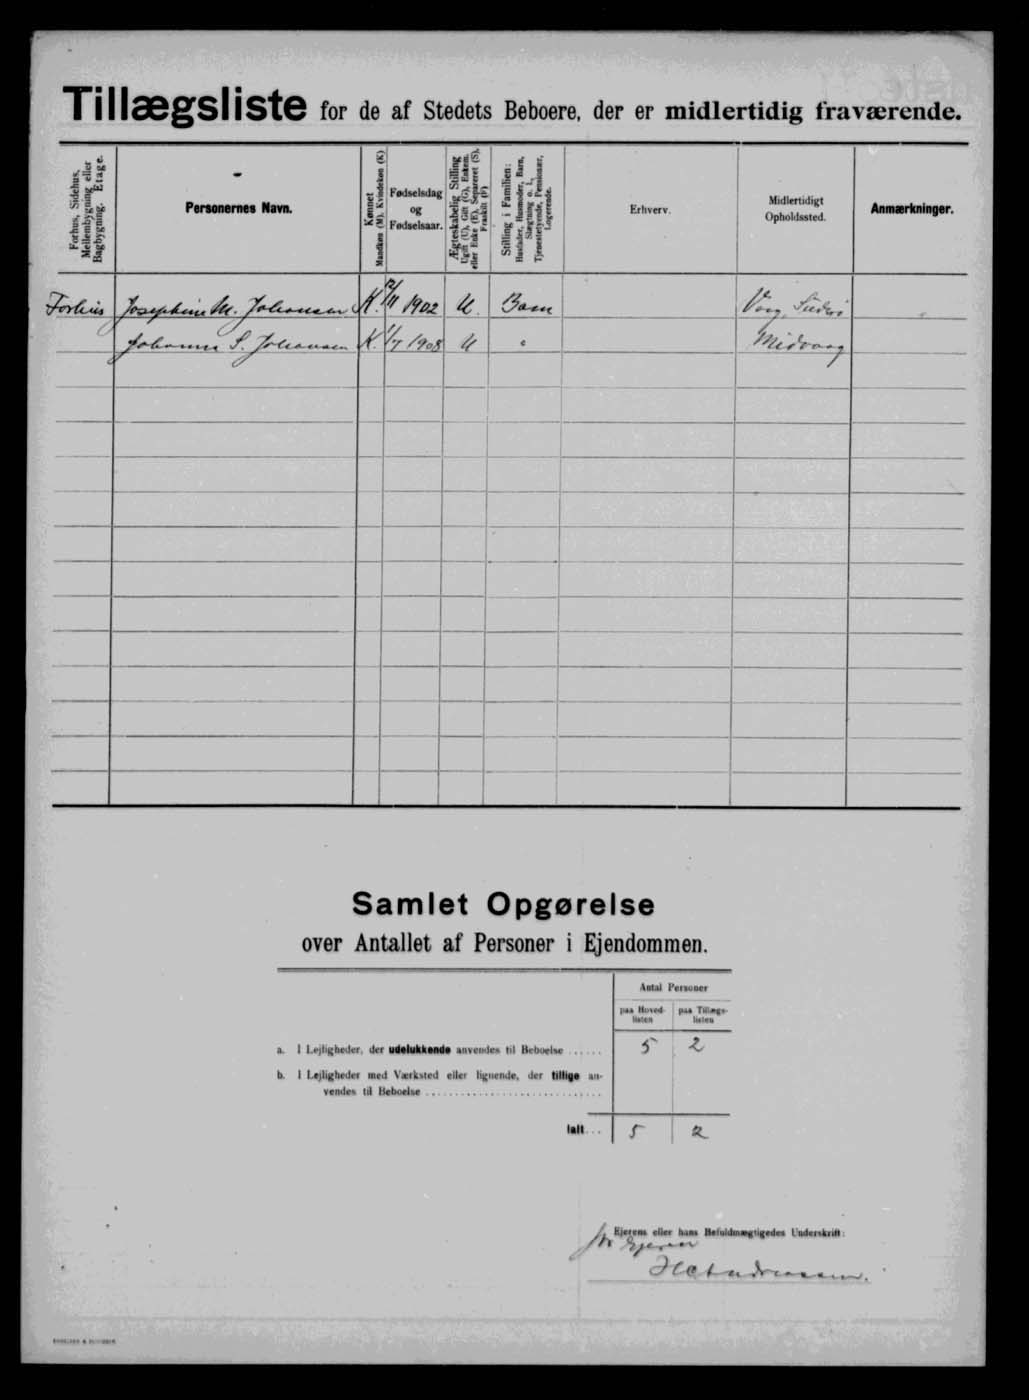 Tillægsliste for de af Stedets Beboere, der er midlertidig fraværende.
Forhus, Sidehus, Mellembygning eller Bagbygning. Etage.
Personernes Navn.
Kønnet Mandkøn (M), Kvindekøn (K)
Fødselsdag og Fødselsaar.
Ægteskabelig Stilling Ugift (U), Gift (G), Enkem. eller Enke (E), Separeret (S), Fraskilt (F)
Stilling i Familien: Husfader, Husmoder, Barn, Slægtning o. l., Tjenestetyende, Pensionær, Logerende.
Erhverv.
Midlertidigt Opholdssted.
Anmærkninger.
Forhus Josephine M. Johansen K. 1902 U. Barn Vaag, Suderø
Johanna S. Johansen K. 1/7 1908 U " Midvaag
Samlet Opgørelse
over Antallet af Personer i Ejendommen.
Antal Personer
paa Hoved-listen paa Tillægs-listen
a. I Lejligheder, der udelukkende anvendes til Beboelse ...... 5 2
b. I Lejligheder med Værksted eller lignende, der tillige an-
vendes til Beboelse
Ialt... 5 2
Ejerens eller hans Befuldmægtigedes Underskrift:
for Ejeren